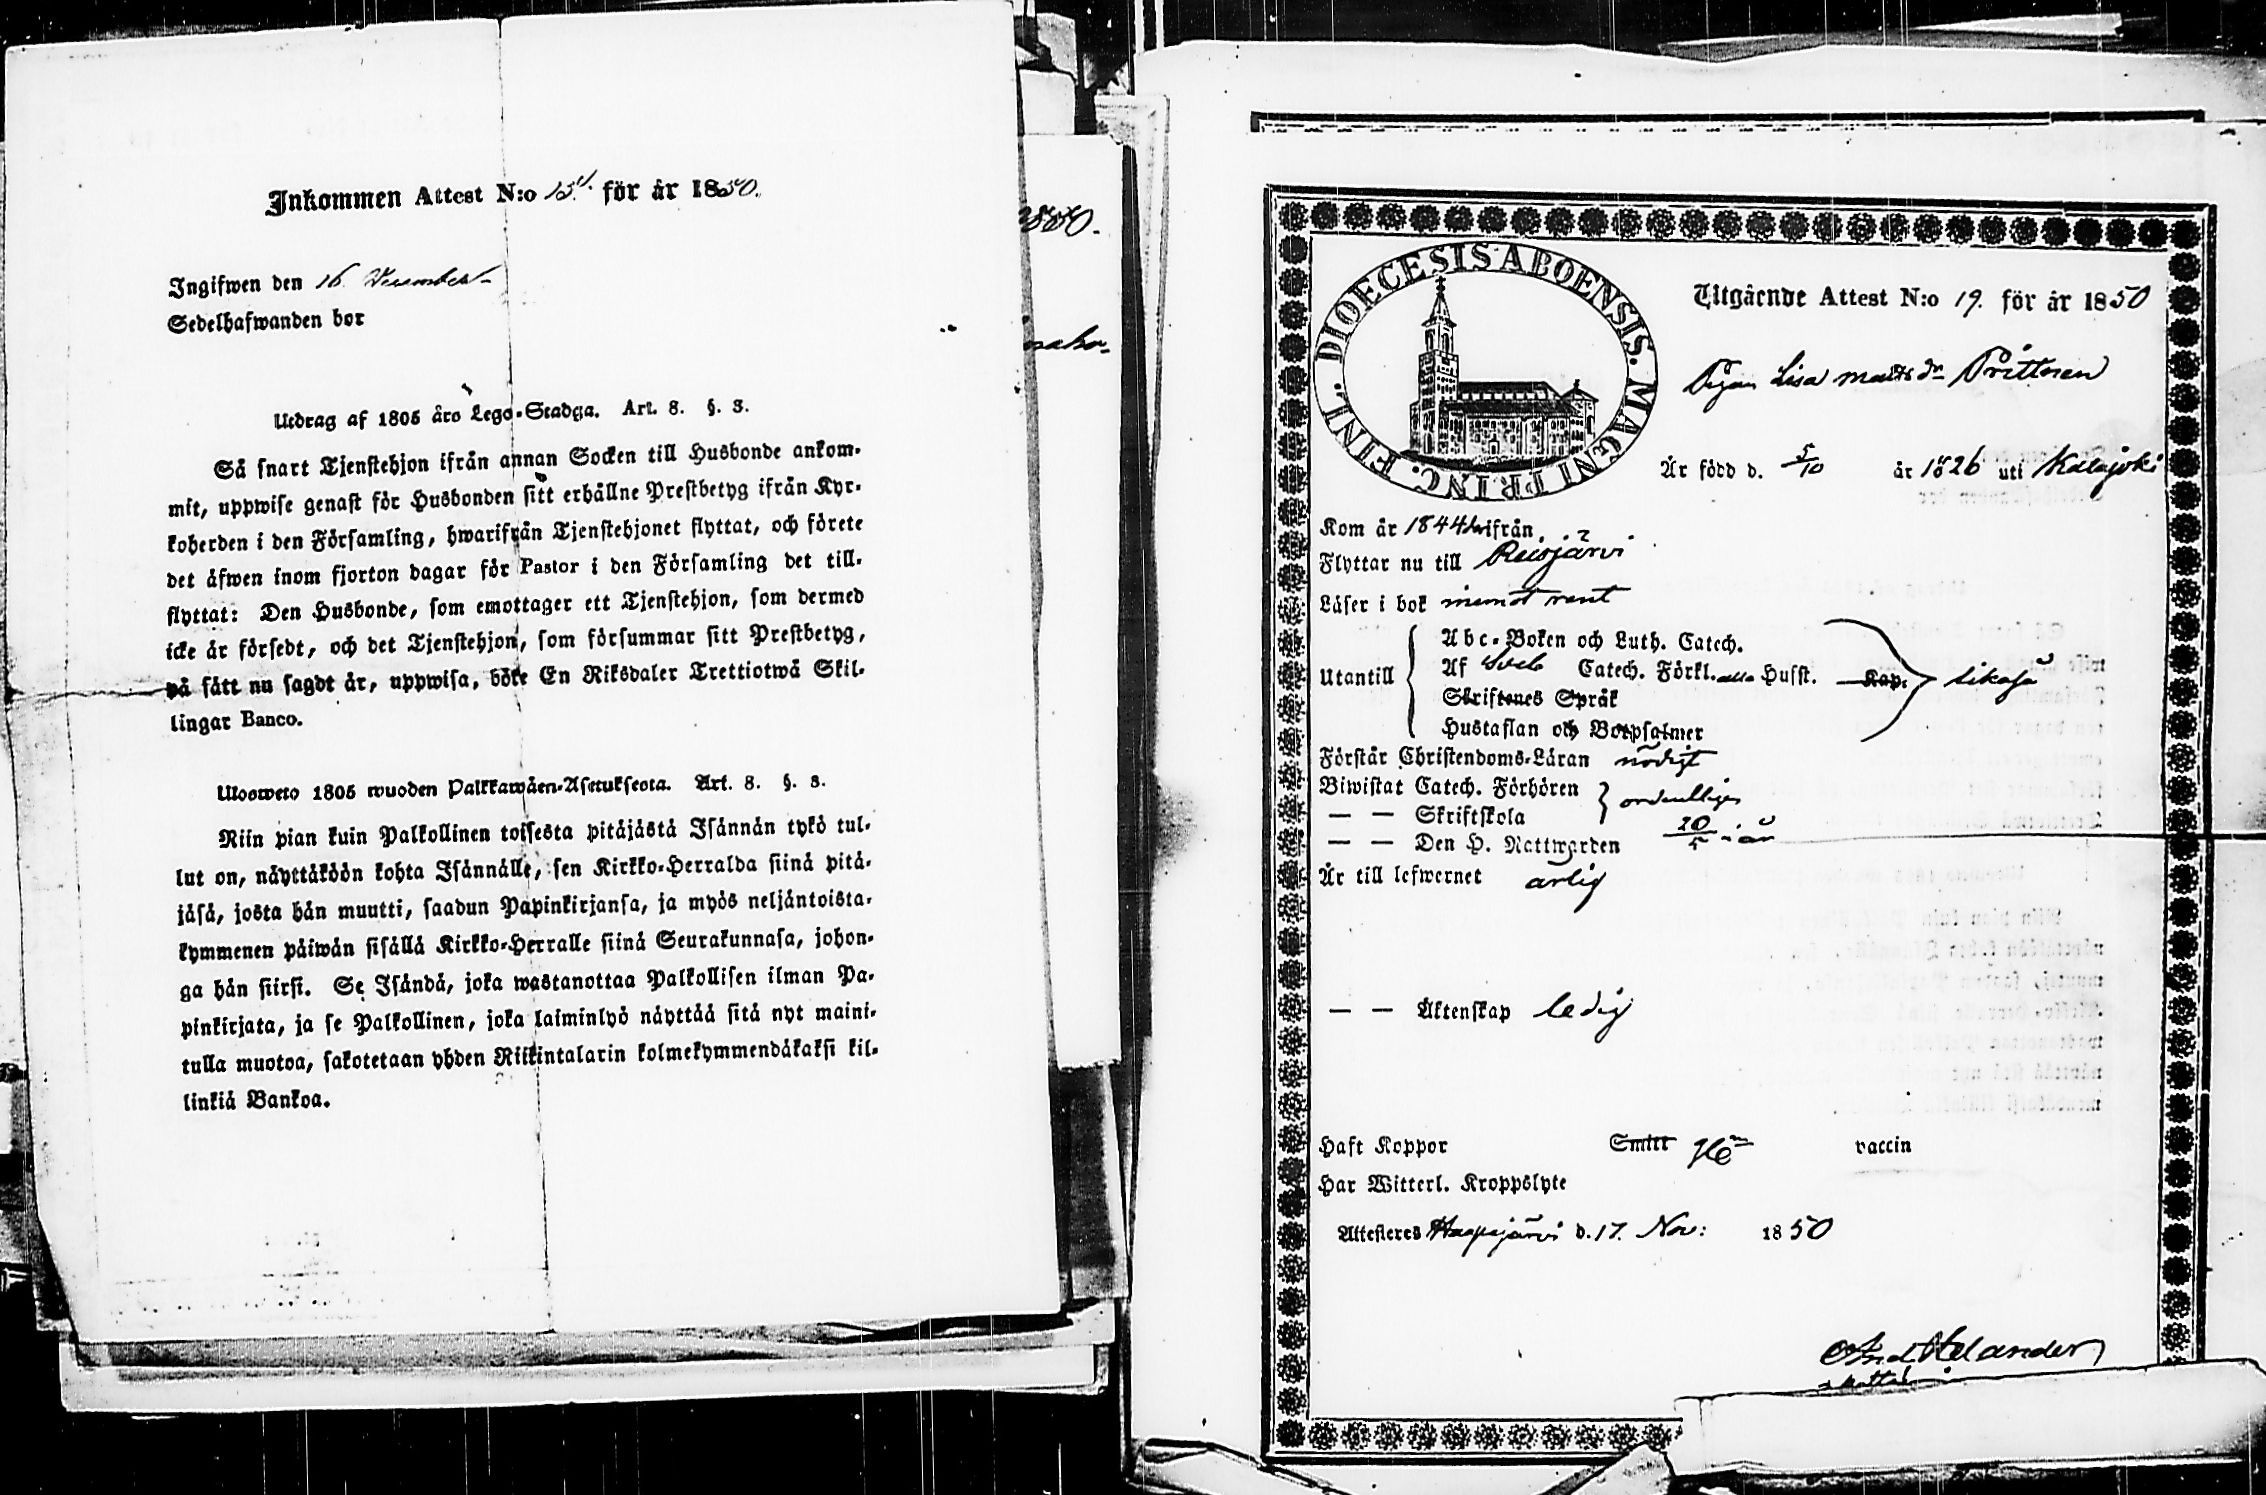 Inkommen Attest N:o 15 för år 1850.
Ingifwen den 16 December
Sedelhafwanden bor
Utdrag af 1805 års Lego-Stadga. Art. 8. §. 3.
Så snart Tjenstehjon ifrån annan Socken till Husbonde ankom-
mit, uppwise genast för Husbonden sitt erhållne Prestbetyg ifrån Kyr-
koherden i den Församling, hwarifrån Tjenstehjonet flyttat, och förete
det äfwen inom fjorton dagar för Pastor i den Församling det till-
flyttat: Den Husbonde, som emottager ett Tjenstehjon, som dermed
icke är försedt, och det Tjenstehjon, som försummar sitt Prestbetyg,
på sätt nu sagdt är, uppwisa, böte En Riksdaler Trettiotwå Skil-
lingar Banco.
Ulosweto 1805 wuoden Palkkawäen-Asetuksesta. Art. 8. §. 3.
Niin pian kuin Palkollinen toisesta pitäjästä Isännän tykö tul-
lut on, näyttäköön kohta Isännälle, sen Kirkko-Herralda siinä pitä-
jäsä, josta hän muutti, saadun Papinkirjansa, ja myös neljäntoista-
kymmenen päiwän sisällä Kirkko-Herralle siinä Seurakunnasa, johon-
ga hän siirsi. Se Isändä, joka wastanottaa Palkollisen ilman Pa-
pinkirjata, ja se Palkollinen, joka laiminlyö näyttää sitä nyt maini-
tulla muotoa, sakotetaan yhden Riikintalarin kolmekymmendäkaksi kil-
linkiä Bankoa.
1850.
DIOECESIS ABOENSIS. MAGNI PRINC. FINL.
Utgående Attest N:o 19. för år 1850
Pigan Lisa Matts dr Prittinen
Är född d. 5/10 år 1826 uti Kalajoki
Kom år 1844 hwifrån
Flyttar nu till Reisjärvi
Läser i bok innant rent
Utantill
Abc-Boken och Luth. Catech.
Af Sveb Catech. Förkl. alla Husst. Kap. likaså
Skriftenes Språk
Hustaflan och Botpsalmer
Förstår Christendoms-Läran nödigt
Biwistat Catech. Förhören ordentligen
— — Skriftskola
— — Den H. Nattwarden 20/5 i år
Är till lefwernet ärlig
— — Äktenskap ledig
Haft Koppor Smitt vaccin
Har Witterl. Kroppslyte
Attesteres Haapajärvi d. 17. Nov: 1850
And Helander